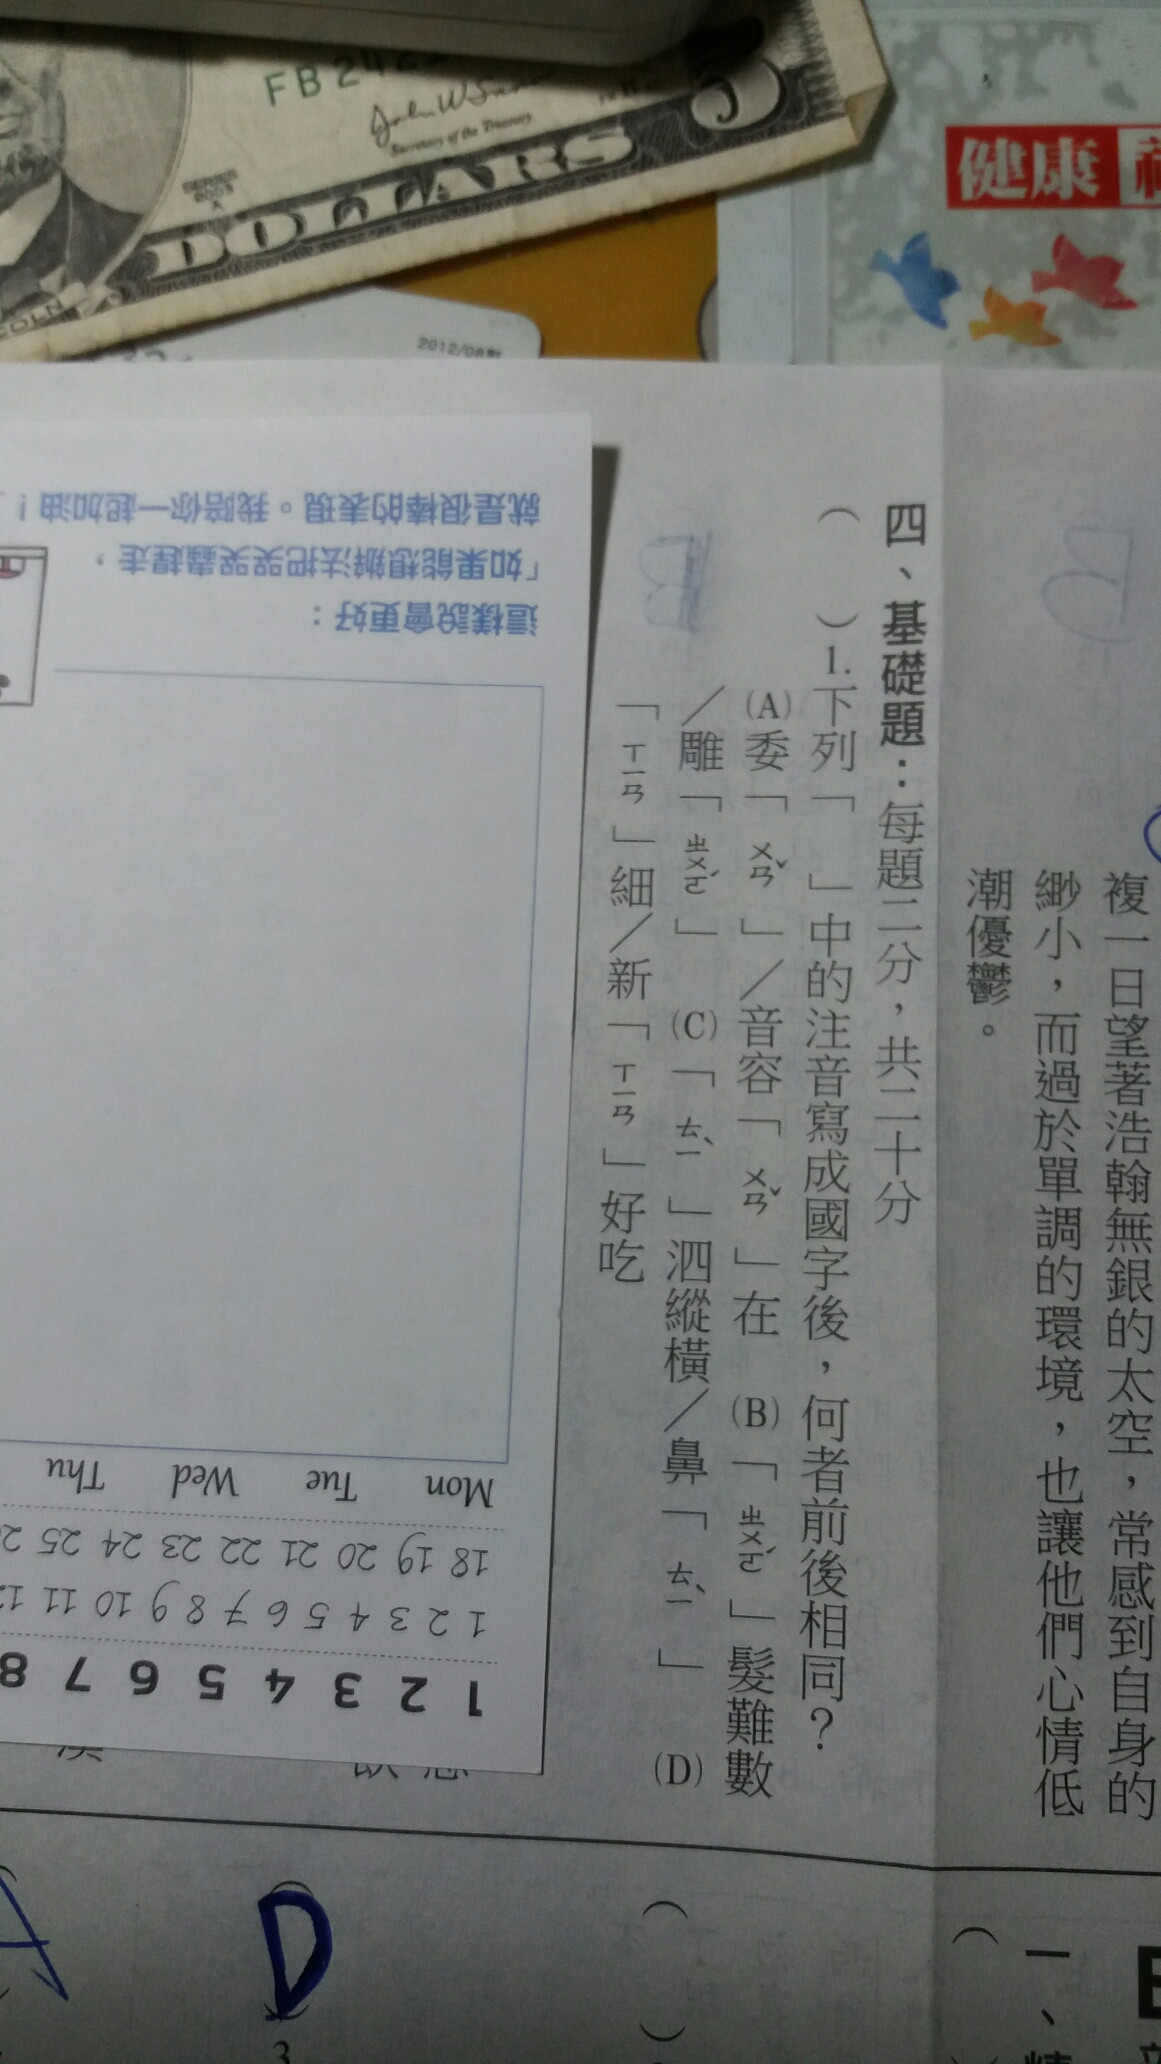 FB2462
John W Snow
Secretary of the Treasury
SERIES
2003
A
DOLLARS
5
COLN
2012/08
健康
複一日望著浩瀚無銀的太空，常感到自身的
緲小，而過於單調的環境，也讓他們心情低
潮優鬱。
四、基礎題：每題二分，共二十分
（　）1.下列「　」中的注音寫成國字後，何者前後相同？
(A)委「ㄨㄢˇ」／音容「ㄨㄢˇ」在　(B)「ㄓㄨㄛˊ」髮難數
／雕「ㄓㄨㄛˊ」　(C)「ㄊㄧˋ」泗縱橫／鼻「ㄊㄧˋ」　(D)
「ㄒㄧㄢ」細／新「ㄒㄧㄢ」好吃
B
B
這樣說會更好：
「如果能想辦法把哭哭蟲趕走，
就是很棒的表現。我陪你一起加油！
Mon Tue Wed Thu
18 19 20 21 22 23 24 25
1 2 3 4 5 6 7 8 9 10 11
1 2 3 4 5 6 7 8
一、
（　）
D
3
A